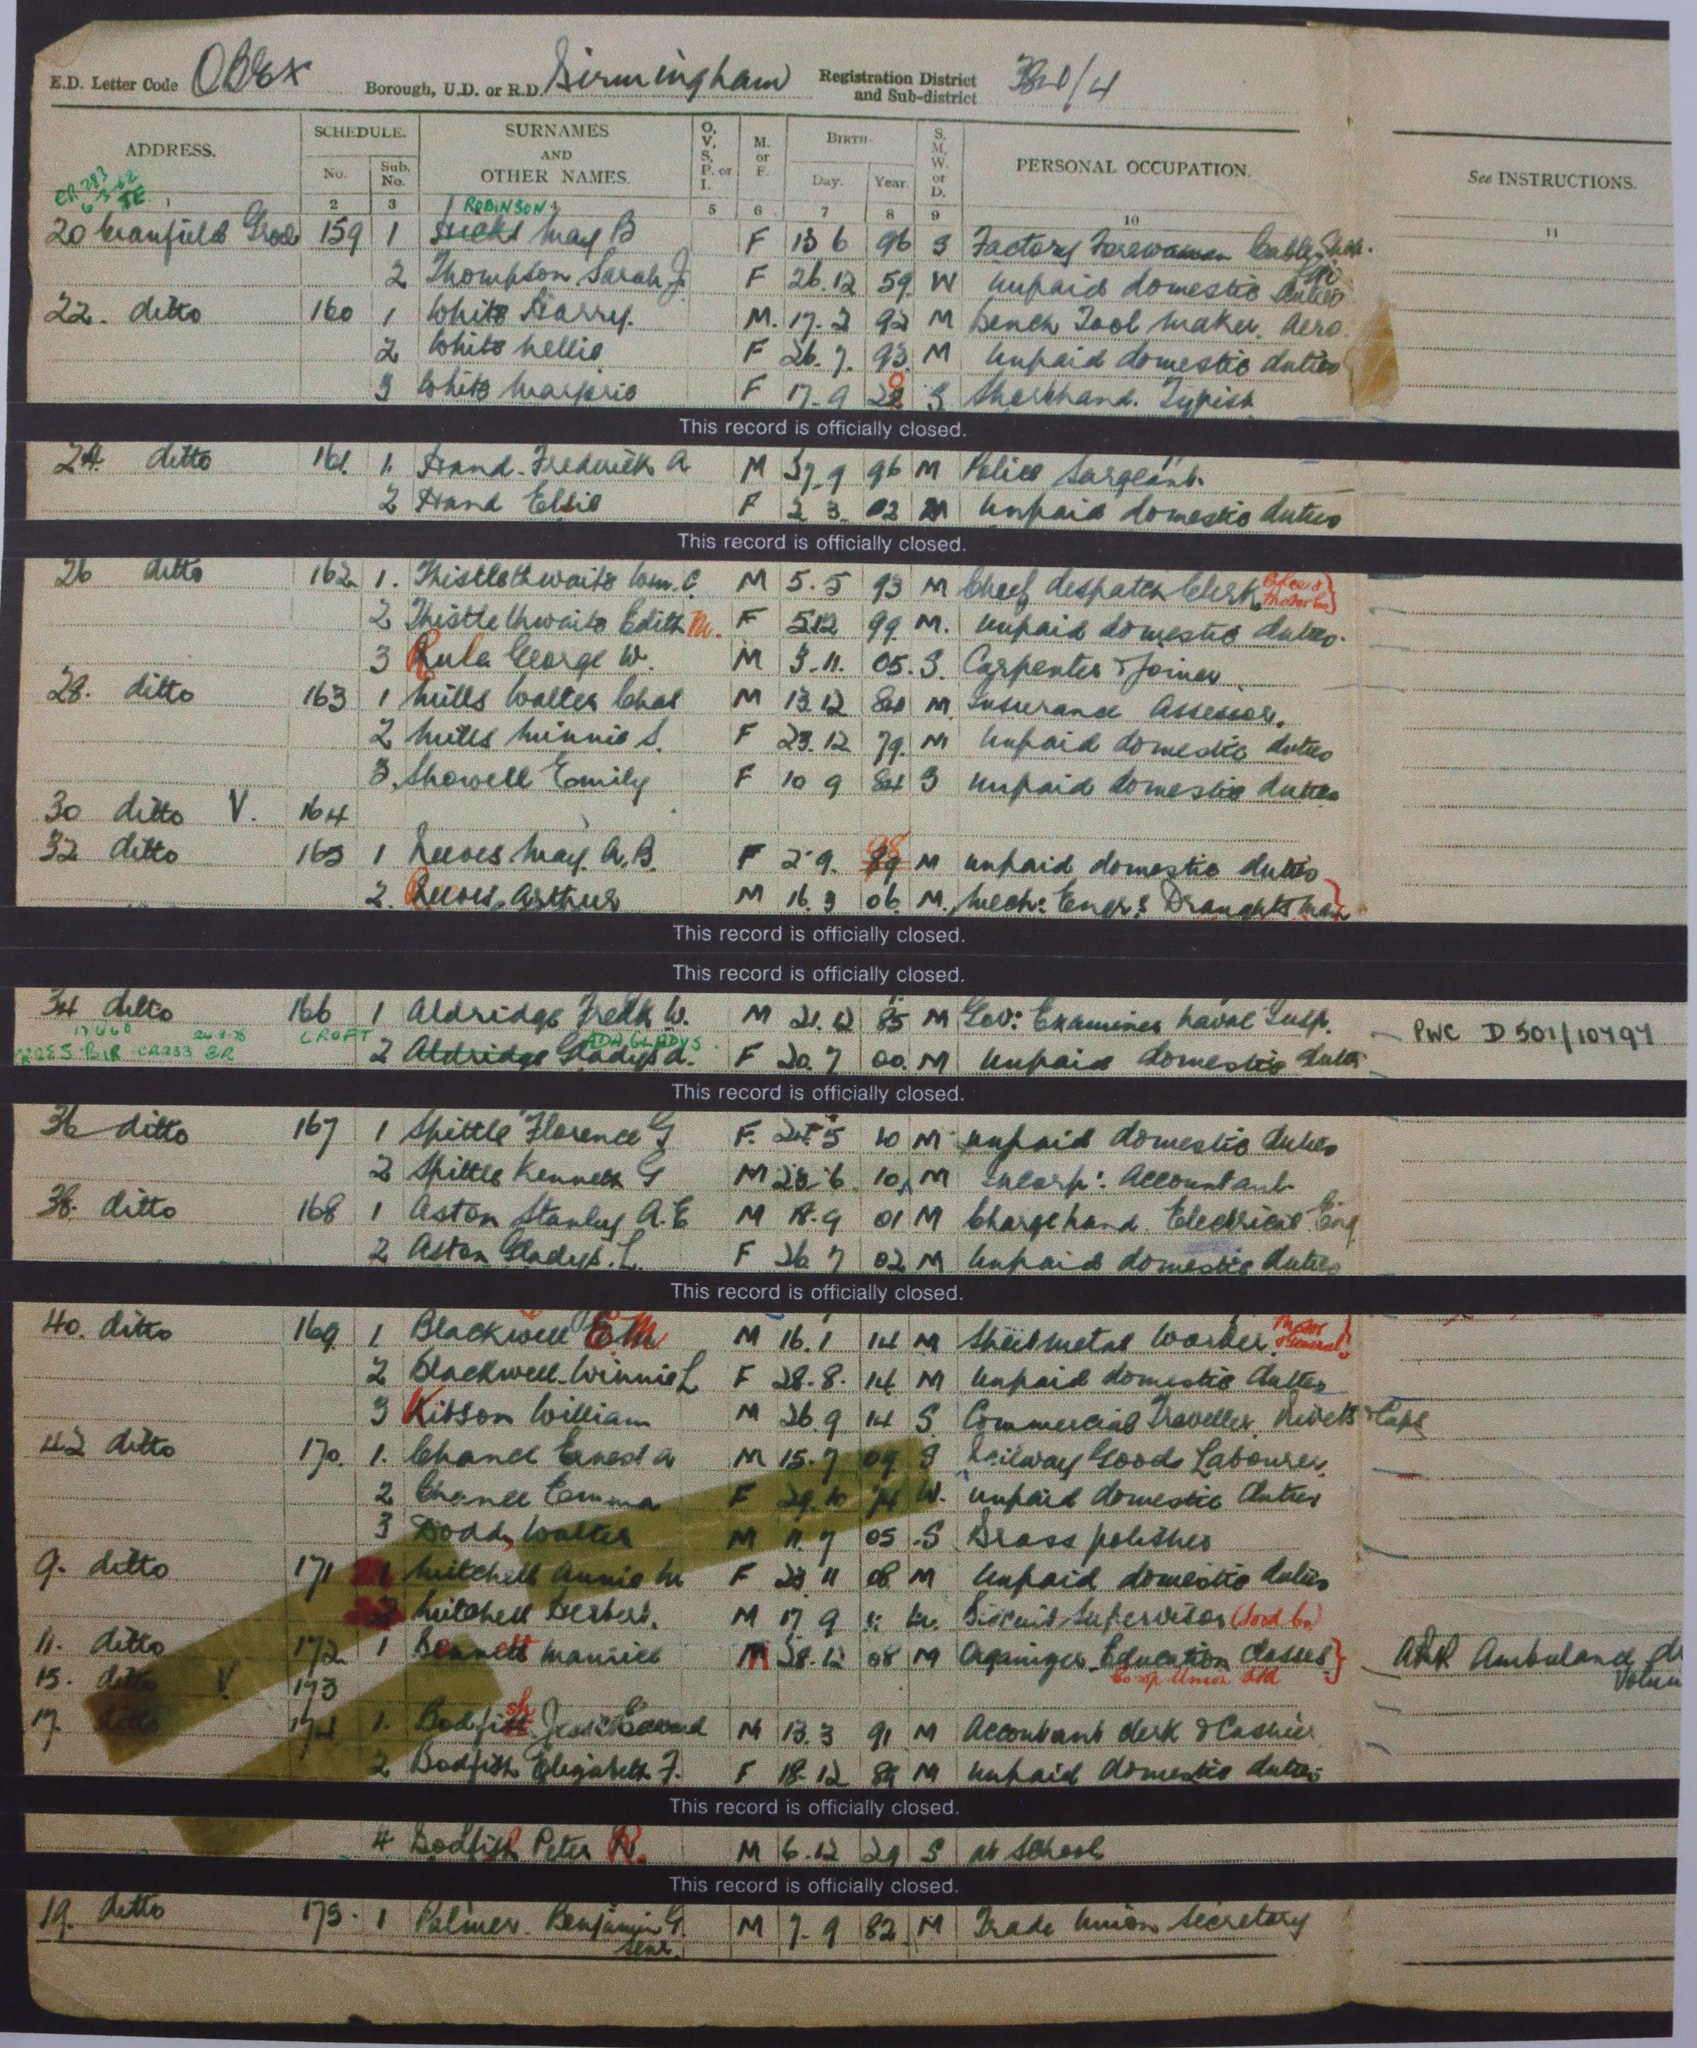 E.D. Letter Code OBEX Borough, U.D. or R.D. Birmingham Registration District and Sub-district /4
ADDRESS. SCHEDULE. No. Sub. No. SURNAMES AND OTHER NAMES. O, V, S, P. or I. M. or F. BIRTH Day. Year. S, M, W. or D. PERSONAL OCCUPATION. See INSTRUCTIONS.
1 2 3 4 5 6 7 8 9 10 11
CR 283 6-3-62
ROBINSON
20 159 1 May B F 13 6 96 S Factory Forewoman Cable
2 Thompson Sarah J. F 26.12 59 W Unpaid domestic duties
22. ditto 160 1 White Harry. M. 17.2 92 M Bench Tool Maker. Aero.
2 White Nellie F 26.7. 93 M Unpaid domestic duties
3 White Marjorie F 17.9 S Shorthand. Typist
This record is officially closed.
24 ditto 161 1. Hand Frederick A M 9 96 M Police Sargeant.
2 Hand Elsie F 2 3 02 M Unpaid domestic duties
This record is officially closed.
26 ditto 162 1. Thistlethwaite Wm. C. M 5.5 93 M Chief despatch Clerk
2 Thistlethwaite Edith M. F 5 12 99 M. Unpaid domestic duties.
3 George W. M 3.11. 05. S. Carpenter & Joiner
28. ditto 163 1 Mills Walter Chas M 13.12 80 M Insurance Assessor.
2 Mills Minnie S. F 23.12 79. M Unpaid domestic duties
3. Showell Emily F 10 9 84 S Unpaid domestic duties
30 ditto V. 164
32 ditto 165 1 Reeves May. A.B. F 2.9. 98 M Unpaid domestic duties
2. Reeves Arthur M 16.3 06. M. Mech: Engr: Draughtsman
This record is officially closed.
This record is officially closed.
34 ditto 166 1 Aldridge Fredk W. M 21.12 85 M Gov: Examiner Naval Insp.
CROFT ADA GLADYS
2 Aldridge Gladys A. F 20.7 00. M Unpaid domestic duties PWC D 501/10797
This record is officially closed.
36 ditto 167 1 Spittle Florence G F. 5 10 M Unpaid domestic duties
2 Spittle Kenneth G M 23.6. 10 M Incorp: Accountant
38. ditto 168 1 Aston Stanley A.E M 18.9 01 M Chargehand Electrical Eng
2 Aston Gladys. L. F 26 7 02 M Unpaid domestic duties
This record is officially closed.
40. ditto 169 1 Blackwell E. M M 16.1 14 M Sheetmetal Worker. Motor & General
2 Blackwell Winnie L F 28.8. 14 M Unpaid domestic duties
3 Kitson William M 26.9 14 S Commercial Traveller. Rivets & Caps
42 ditto 170. 1. Chance Ernest A M 15.7 09 S Railway Goods Labourer.
2 Chance Emma F 29.10 74 W. Unpaid domestic duties
3 Dodd, Walter M 11.7 05 S Brass polisher
9. ditto 171 1 Mitchell Annie M F 23 11 08 M Unpaid domestic duties
2 Mitchell Herbert. M 17 9 11 M. Biscuit Supervisor (Food Co)
11. ditto 172 1 Bennett Maurice M 28.12 08 M Organiser Education Classes Co-op Union Ltd ARP Ambulance
15. ditto V. 173
17. ditto 174 1. Bodfish Edward M 13.3 91 M Accountant clerk & Cashier
2 Bodfish Elizabeth F. F 18.12 89 M Unpaid domestic duties
This record is officially closed.
4 Bodfish Peter R. M 6.12 29 S at School
This record is officially closed.
19. ditto 175. 1 Palmer. Benjamin G. M 7.9 82. M Trade Union Secretary
Senr.